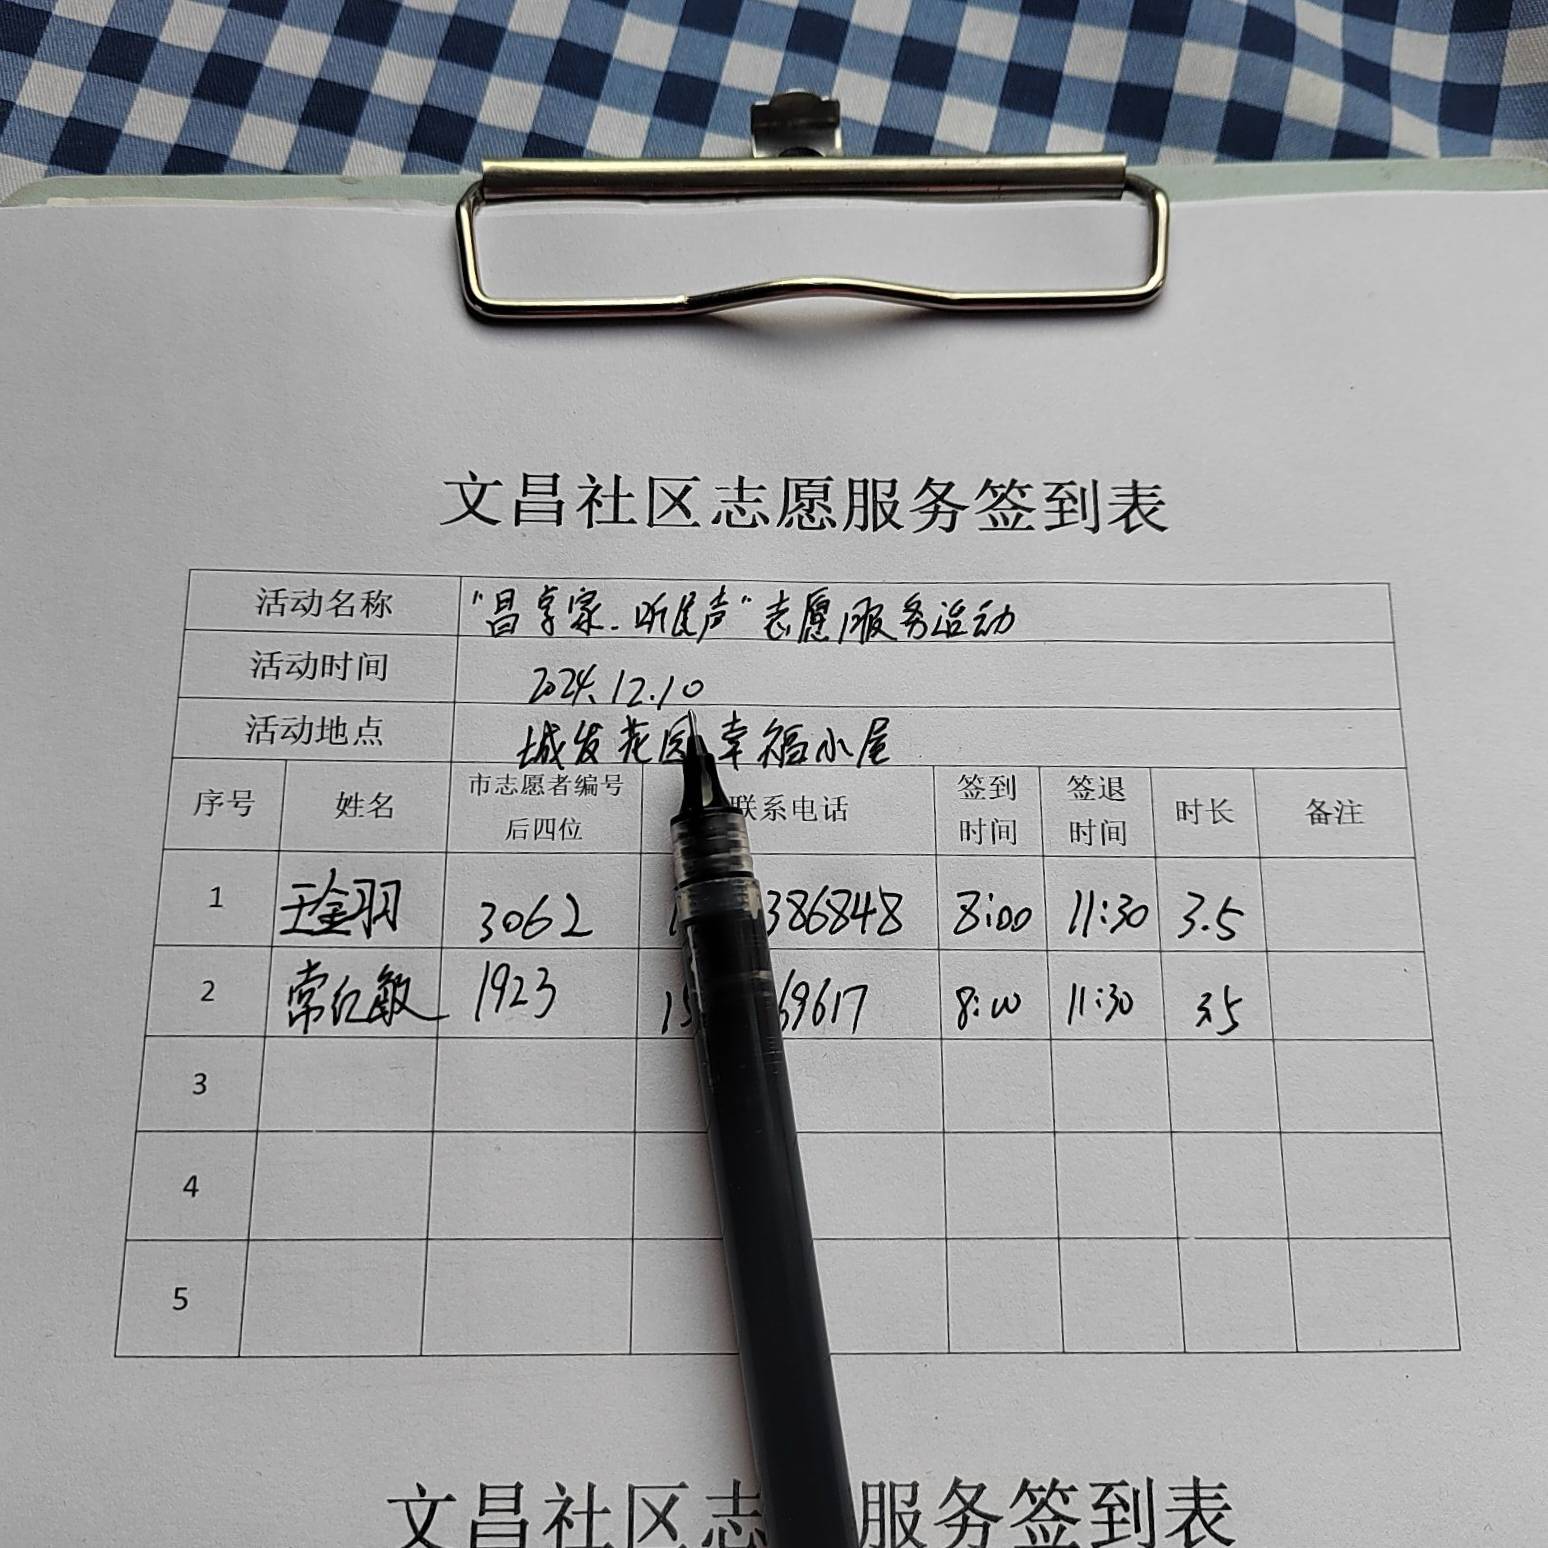 文昌社区志愿服务签到表
活动名称 "昌享家.听民声"志愿服务活动
活动时间 2024.12.10
活动地点 城发花园幸福小屋
序号 姓名 市志愿者编号后四位 联系电话 签到时间 签退时间 时长 备注
1 王金羽 3062 1 386848 8:00 11:30 3.5
2 常红敏 1923 15 69617 8:00 11:30 3.5
3
4
5
文昌社区志 服务签到表